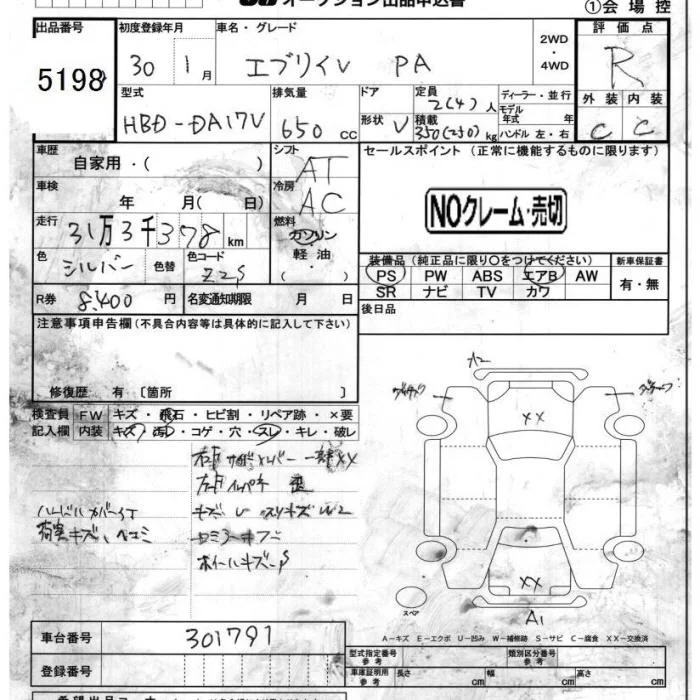 オークション出品申込書
①会場控
出品番号 5198
初度登録年月 30 1月
車名・グレード エブリイV PA
2WD・4WD
評価点 R
外装 C 内装 C
型式 HBD-DA17V
排気量 650 cc
ドア 形状 V
定員 2(4)人
積載 350(250)kg
ディーラー・並行
モデル年式 年
ハンドル 左・右
車歴 自家用・( )
シフト AT
セールスポイント (正常に機能するものに限ります)
車検 年 月( 日)
冷房 AC
NOクレーム・売切
走行 31万3千378km
燃料 ガソリン・軽油・( )
色 シルバー 色替
色コード Z2S
装備品(純正品に限り○をつけてください)
新車保証書 有・無
PS PW ABS エアB AW
SR ナビ TV カワ
R券 8,400円
名変通知期限 月 日
後日品
注意事項申告欄(不具合内容等は具体的に記入して下さい)
修復歴 有〔箇所 〕
検査員記入欄
FW キズ・飛石・ヒビ割・リペア跡・×要
内装 キズ・汚れ・コゲ・穴・スレ・キレ・破レ
XX
A1
XX
スペア
A-キズ E-エクボ U-凹み W-補修跡 S-サビ C-腐食 XX-交換済
車台番号 301791
型式指定番号 参考
類別区分番号 参考
登録番号
車庫証明用 参考 長さ cm 幅 cm 高さ cm